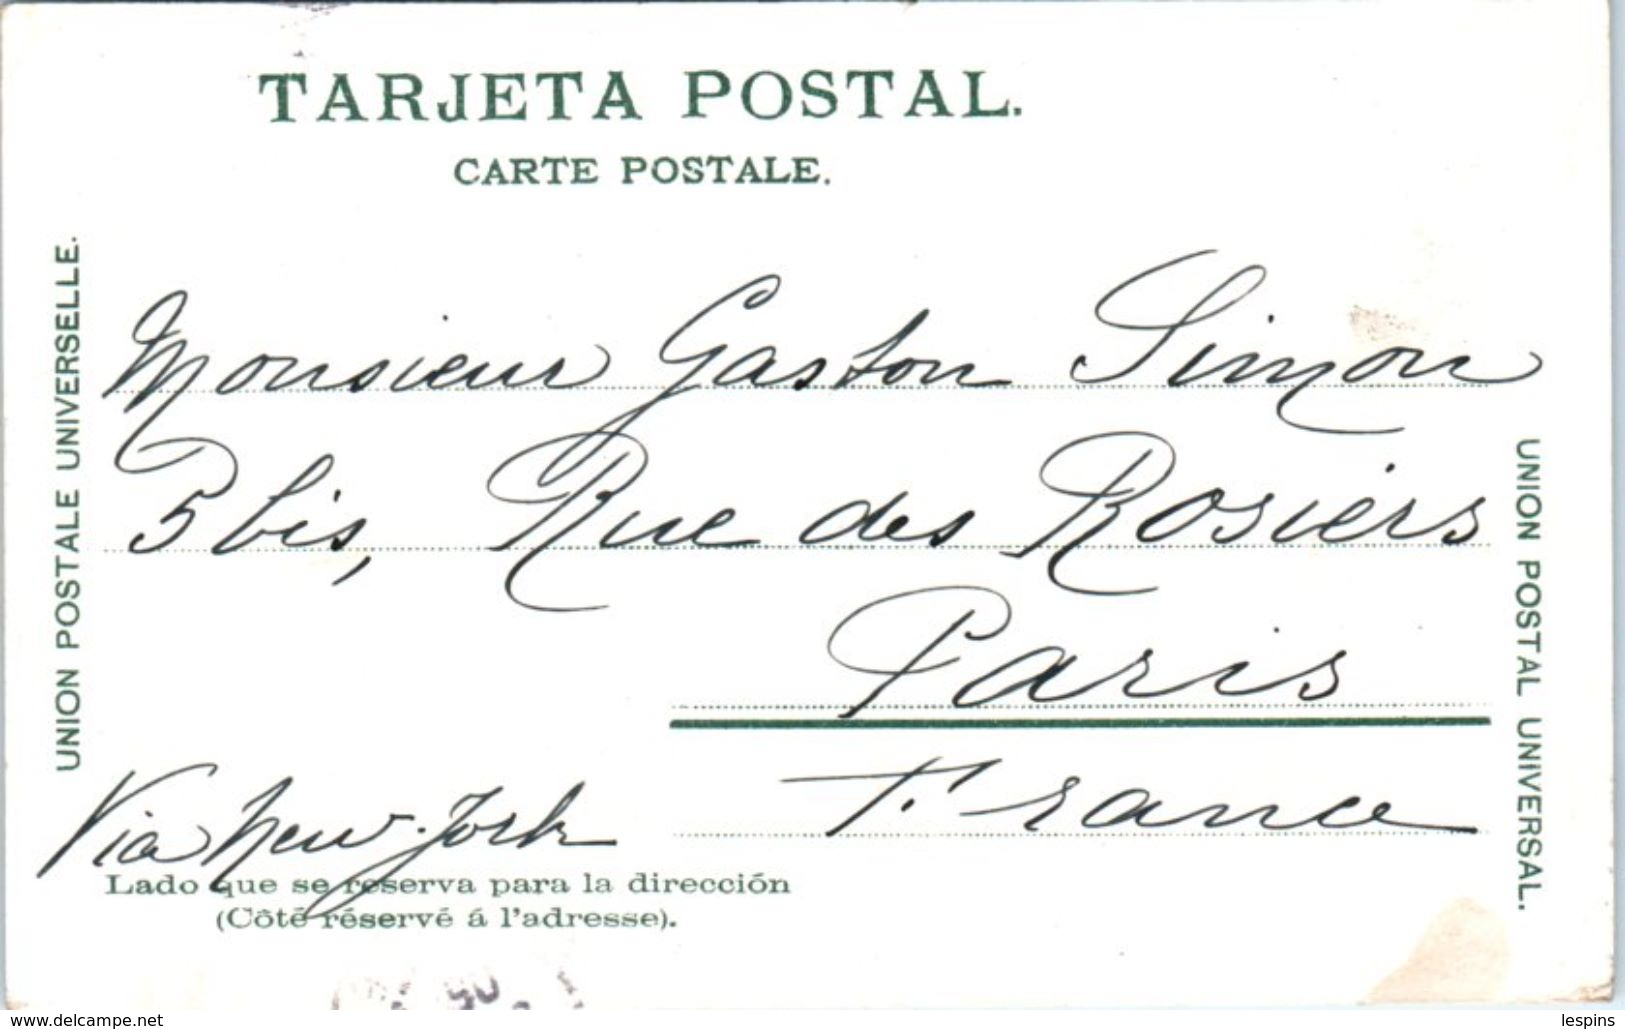 TARJETA POSTAL.
CARTE POSTALE.
UNION POSTALE UNIVERSELLE.
Monsieur Gaston Simon
5 bis, Rue des Rosiers
Paris
France
Via New-York
UNION POSTAL UNIVERSAL.
Lado que se reserva para la dirección
(Côté réservé á l'adresse).
www.delcampe.net
lespins